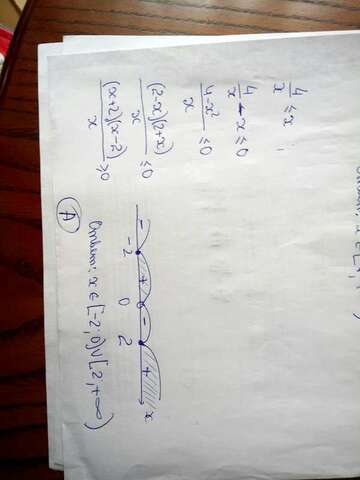 4/x ≤ x
4/x - x ≤ 0
(4-x²)/x ≤ 0
(2-x)(2+x)/x ≤ 0
(x+2)(x-2)/x ≥ 0
- + - +
-2 0 2 x
Ответ: x ∈ [-2; 0) ∪ [2; +∞)
A